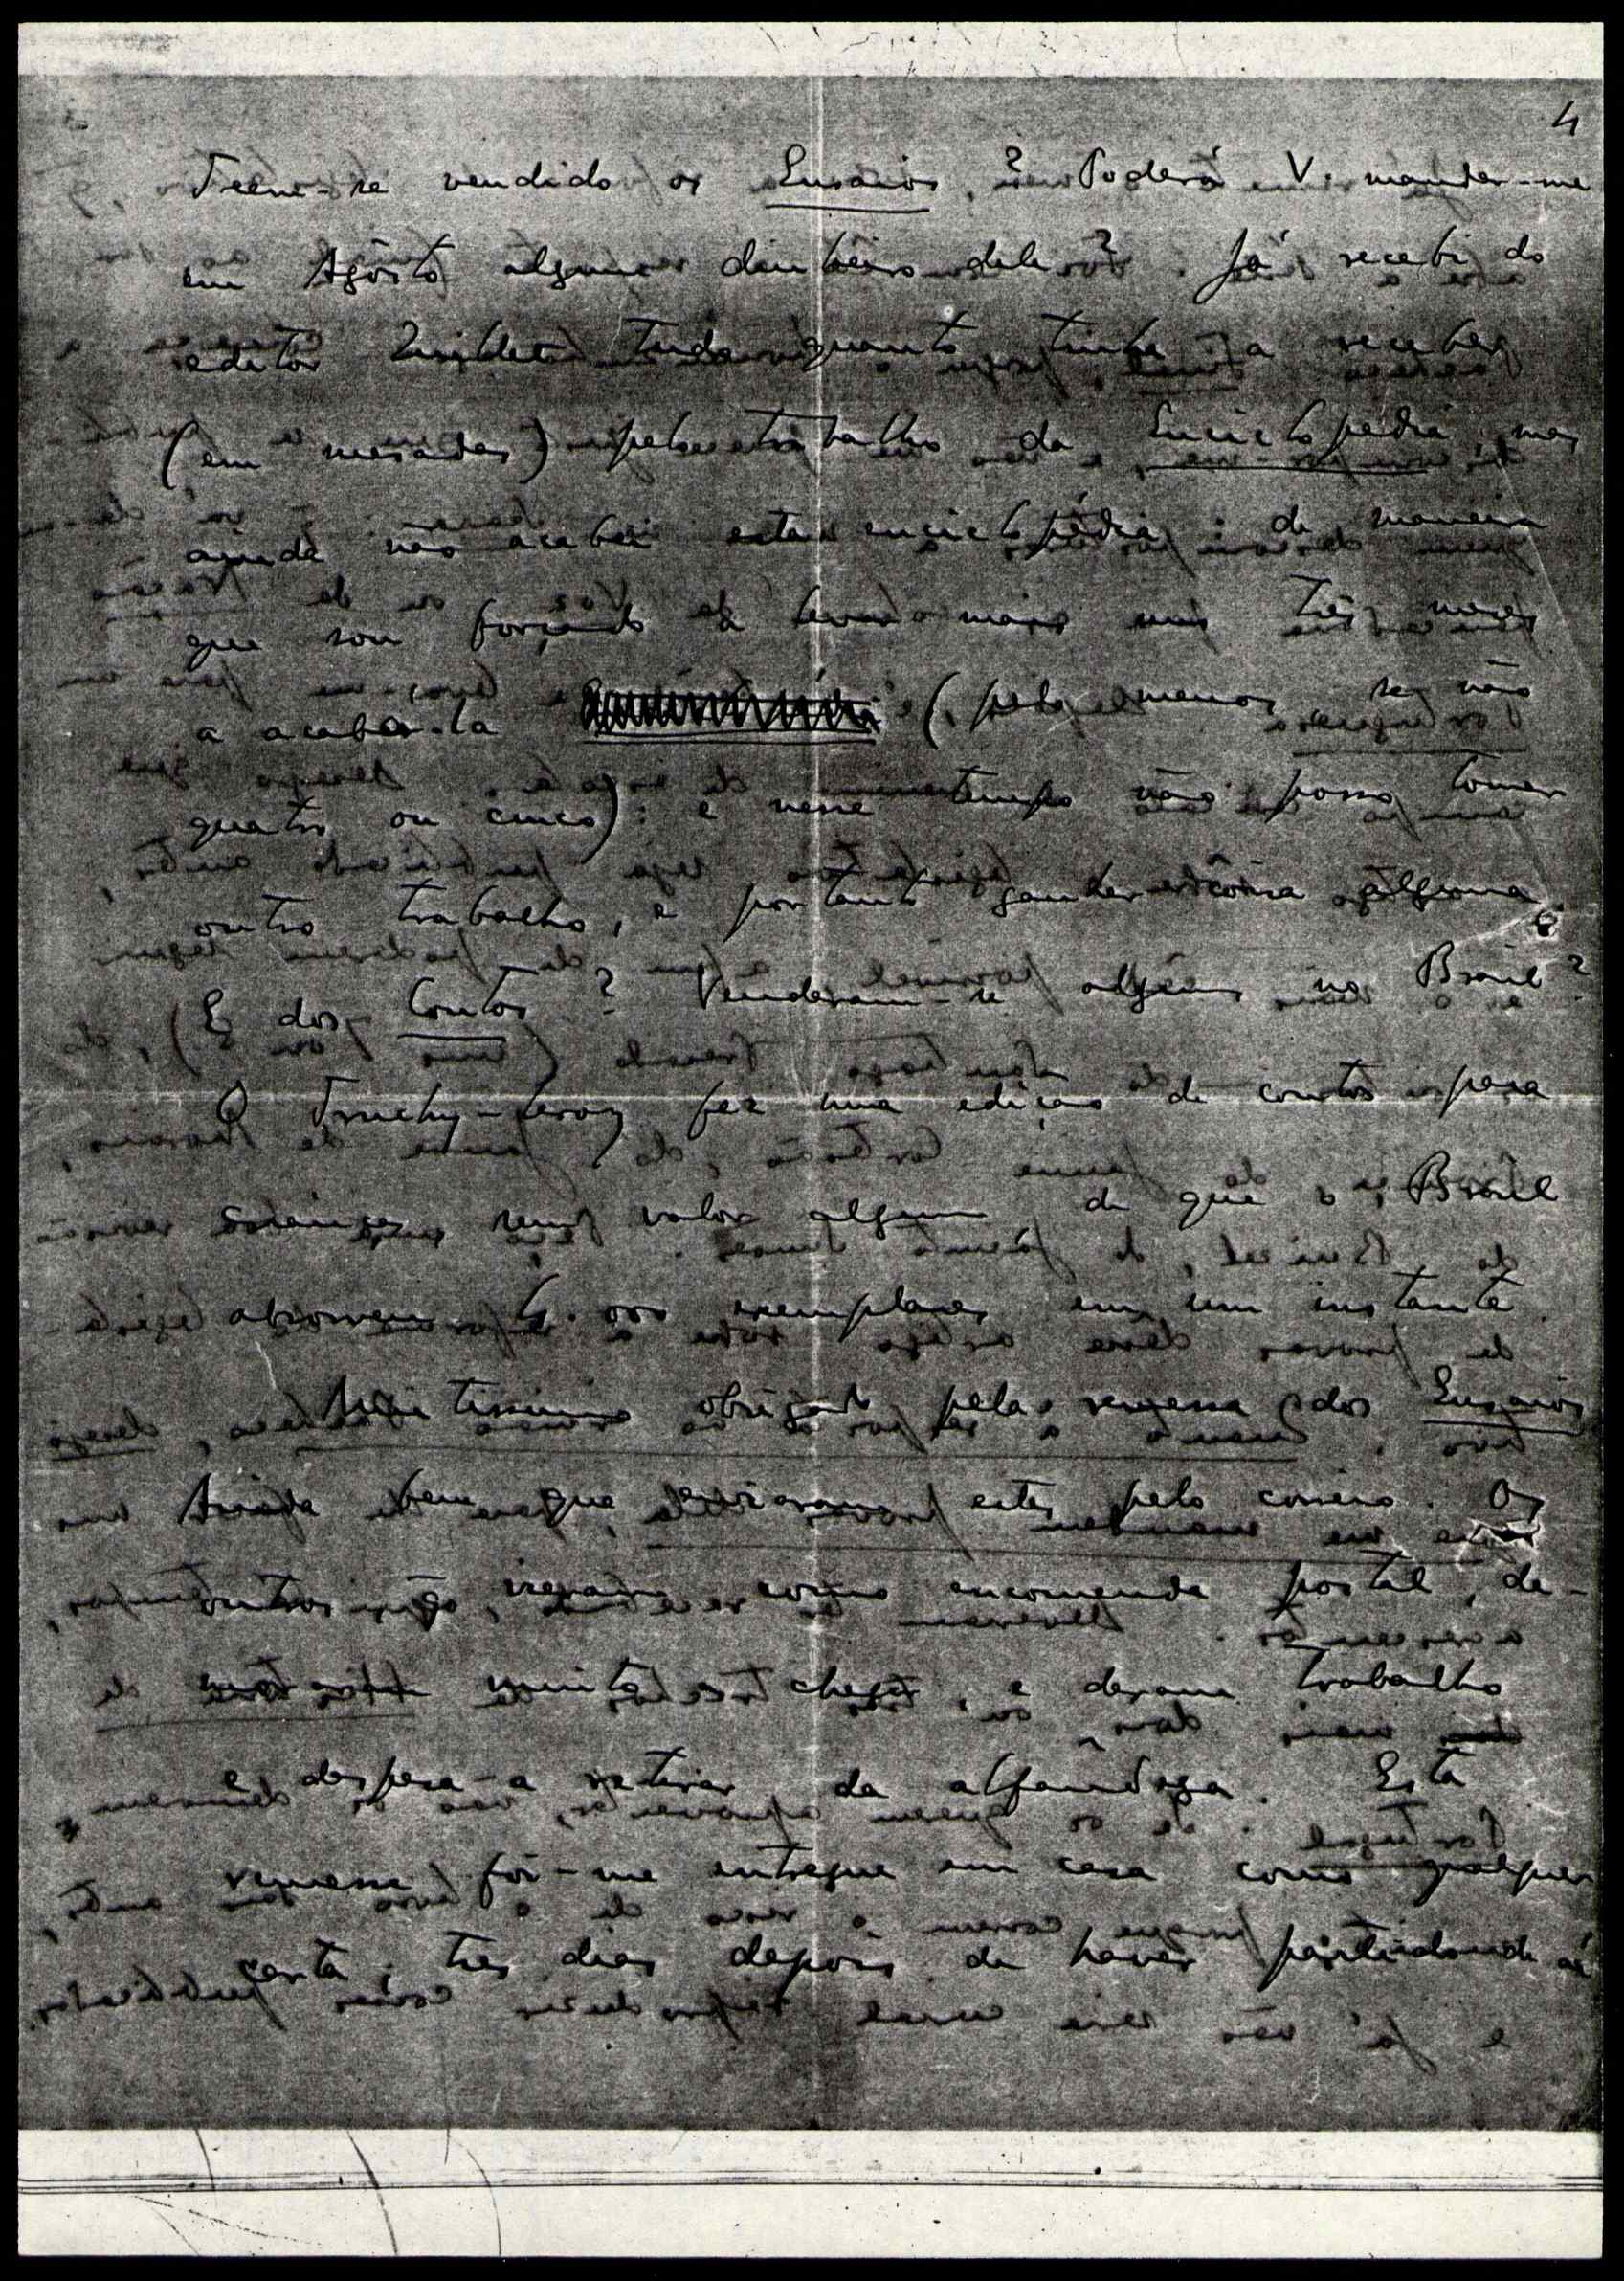 4
Teem-se vendido os Ensaios? Poderá V. mandar-me
em Agôsto algum dinheiro dele? Já recebi do
editor tudo quanto tinha a receber
(em mesadas) pelo trabalho da Enciclopédia, mas
ainda não acabei esta enciclopédia; de maneira
que sou forçado a levar mais uns três meses
a acabá-la (pelo menos, se não
quatro ou cinco): e nesse tempo não posso tomar
outro trabalho, e portanto ganhar coisa alguma.
(E dos Contos? Venderam-se alguns no Brasil?
O Truchy-Leroy fez uma edição de contos para
crianças, sem valor algum, de que o Brasil
absorveu 4.000 exemplares em um instante.
Muitissimo obrigado pela remessa dos Ensaios
Ainda bem que enviaram estes pelo correio. Os
outros vieram como encomenda postal, de-
muito a chegar, e deram trabalho
e despesa a retirar da alfândega. Esta
remessa foi-me entregue em casa como qualquer
carta, tres dias depois de haver partido de aí